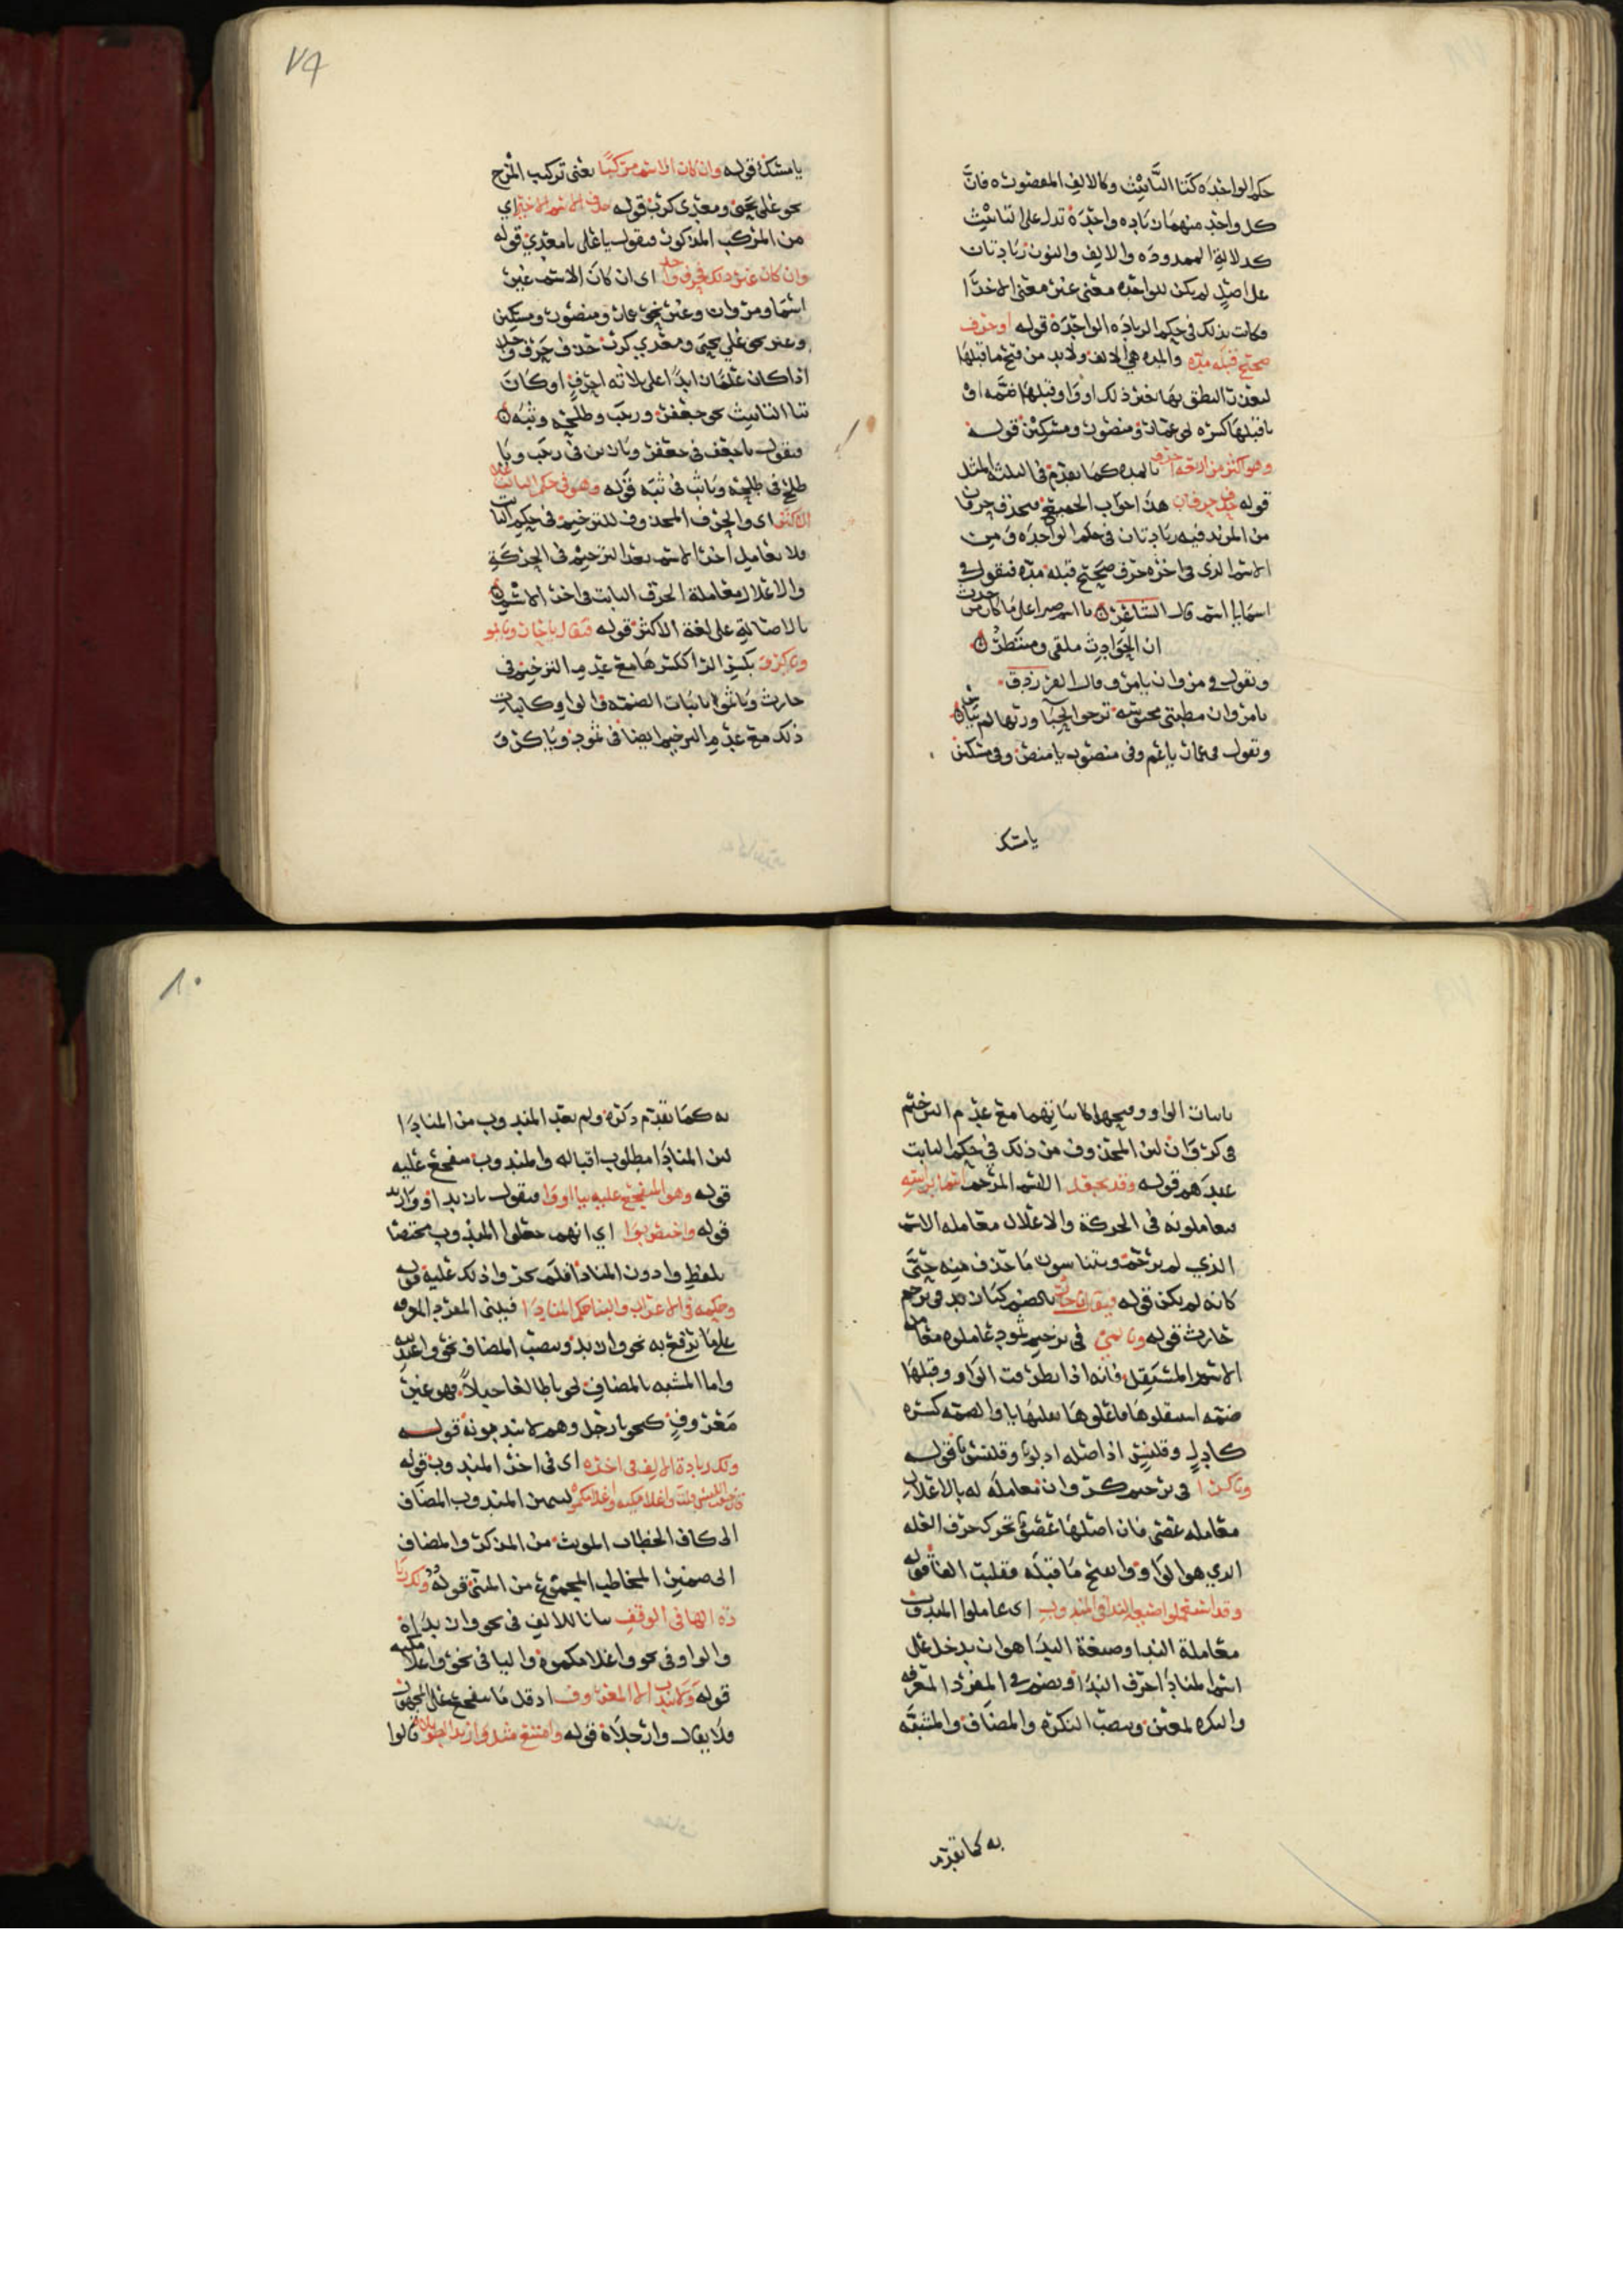 حكم الواحده كتا التانيث وكالالف المقصوره فان
كل واحد منهما زياده واحدة تدل على التانيث
كدلالة الممدوده والالف والنون زيادتان
على اصل لم يكن للواحده معنى غير معنى الاخرا
فكانت بذلك في حكم الزياده الواحدة قوله او حرف
صحيح قبله مده والمده هي الالف ولا بد من فتح ما قبلها
لتعذر النطق بها بغير ذلك او واو قبلها ضمه او
يا قبلها كسره نحو عمار ومنصور ومسكين قوله
وهو اكثر من اربعه احرف بالمده كما تقدم في امثله
قوله حذف حرفان هذا جواب الجميع فيحذف حرفان
من المزيد فيه زيادتان في حكم الواحده ومن
الاسم الذي في اخره حرف صحيح قبله مده فتقول في
اسما يا اسم قال الشاعر يا اسم صبرا على ما كان من حدث
ان الحوادث ملقى ومنتظر
وتقول في مروان يا مرو قال الفرزدق
يا مرو ان مطيتي محبوسه ترجوا الحبا وربها لم ييأس
وتقول في عمار يا عم وفي منصور يا منص وفي مسكين
يا مسك
٧٩
يا مسك قوله وان كان الاسم مركبا يعني تركيب المزج
نحو على يحيى ومعدي كرب قوله حذف الاسم الاخير اي
من المركب المذكور فتقول يا على يا معدي قوله
وان كان غير ذلك فحرف واحد اي ان كان الاسم غير
اسما ومروان وغير نحو عمار ومنصور ومسكين
وغير نحو علي يحيى ومعدي كرب حذف حرف واحد
اذا كان علما زايدا على ثلاثه احرف او كان
بتا التانيث نحو جعفر ورجب وطلحه وثبه
فتقول يا جعف في جعفر ويا رج في رجب ويا
طلح في طلحه ويا ثب في ثبه قوله وهو في حكم الثابت على
الاكثر اي والحرف المحذوف للترخيم في حكم الثابت
فلا تعامل اخر الاسم بعد الترخيم في الحركة
والاعلال معاملة الحرف الثابت في اخر الاسم
بالاصالة على لغة الاكثر قوله فيقال يا حار ويا ثمو
ويا كرو بكسر الرا ككسرها مع عدم الترخيم في
حارث ويا ثمو باثبات الضمه والواو كاثبات
ذلك مع عدم الترخيم ايضا في ثمود ويا كرو
باثبات الواو وفتحها كاثباتهما مع عدم الترخيم
في كروان لان المحذوف من ذلك في حكم الثابت
عندهم قوله وقد يجعل الاسم المرخم اسما برأسه
فيعاملونه في الحركة والاعلال معامله الاسم
الذي لم يرخم ويتناسون ما حذف منه حتى
كانه لم يكن قوله فيقال يا حار بالضم كيا زيد في ترخيم
حارث قوله ويا ثمي في ترخيم ثمود عاملوه معامله
الاسم المستقل فانه اذا تطرفت الواو وقبلها
ضمه استثقلوها فاعلوها بقلبها يا والضمه كسره
كادل وقلنس اذ اصله ادلو وقلنسو قوله
ويا كرا في ترخيم كروان تعامله له بالاعلال
معامله عصى فان اصلها عصو تحرك حرف العله
الذي هو الواو وانفتح ما قبله فقلبت الفا قوله
وقد استعملوا صيغه الندا في المندوب اي عاملوا المندوب
معاملة الندا وصيغة الندا هو ان يدخل على
اسم المنادا حرف الندا ويضم في المفرد المعرفه
والنكره لمعين وينصب النكره والمضاف والمشبه
به كما تقدم
٨٠
به كما تقدم ذكره ولم يعد المندوب من المنادا
لان المنادا مطلوب اقباله والمندوب متفجع عليه
قوله وهو المتفجع عليه بيا او وا فتقول يا زيدا او وا زيد
قوله واختص بوا اي انهم جعلوا المندوب مختصا
بلفظ وا دون المنادا فلم يجروا ذلك عليه قوله
وحكمه في الاعراب والبنا حكم المنادا فيبنى المفرد المعرفه
على ما يرفع به نحو وا زيد وينصب المضاف نحو وا عبد الله
واما المشبه بالمضاف نحو يا طالعا جبلا فهو غير
معروف كنحو يا رجل وهم لا يندبونه قوله
ولك زيادة الالف في اخره اي في اخر المندوب قوله
فان خفت اللبس قلت واغلامكيه واغلامكموه ليتميز المندوب المضاف
الى كاف الخطاب المونث من المذكر والمضاف
الى ضمير المخاطب المجموع من المثنى قوله ولك زيا
ده الها في الوقف بيانا للالف في نحو وا زيداه
والواو في نحو واغلامكموه واليا في نحو واغلامكيه
قوله ولا يندب الا المعروف اذ قل ما يتفجع على المجهول
ولا يقال وا رجلاه قوله وامتنع مثل وا زيد الطويلاه قالوا